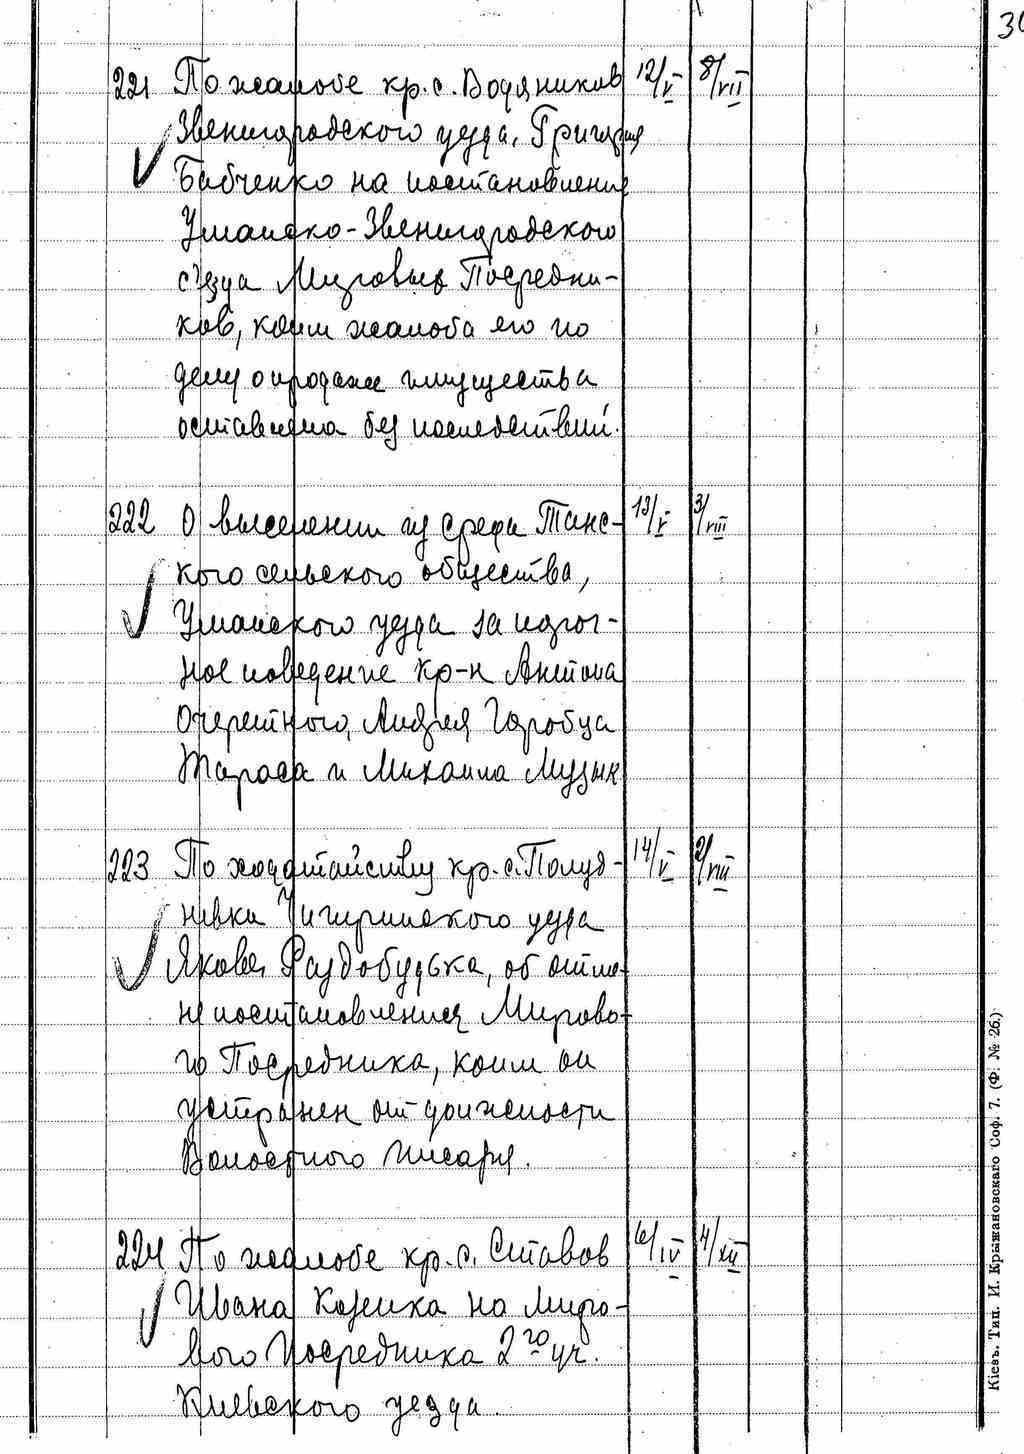 30
221 По жалобе кр. с. Водяников 12/V 8/VII
Звенигородского уезда, Григория
Бабченко на постановление
Уманско-Звенигородского
съезда Мировых Посредни-
ков, коим жалоба его по
делу о продаже имущества
оставлена без последствий.
222 О выселении из среды Танс- 13/V 3/VIII
кого сельского общества,
Уманского уезда за пороч-
ное поведение кр-н Антона
Очеретного, Андрея Горобца
Тараса и Михаила Музык
223 По ходатайству кр. с. Полуд- 14/V 2/VIII
невки Чигиринского уезда
Якова Раздобудька, об отме-
не постановления Мирово-
го Посредника, коим он
устранен от должности
Волостного писаря.
224 По жалобе кр. с. Ставов 6/IV 4/XII
Ивана на Миро-
вого Посредника 2го уч.
Киевского уезда.
Кіевъ. Тип. И. Крыжановскаго Соф. 7. (Ф. № 26.)